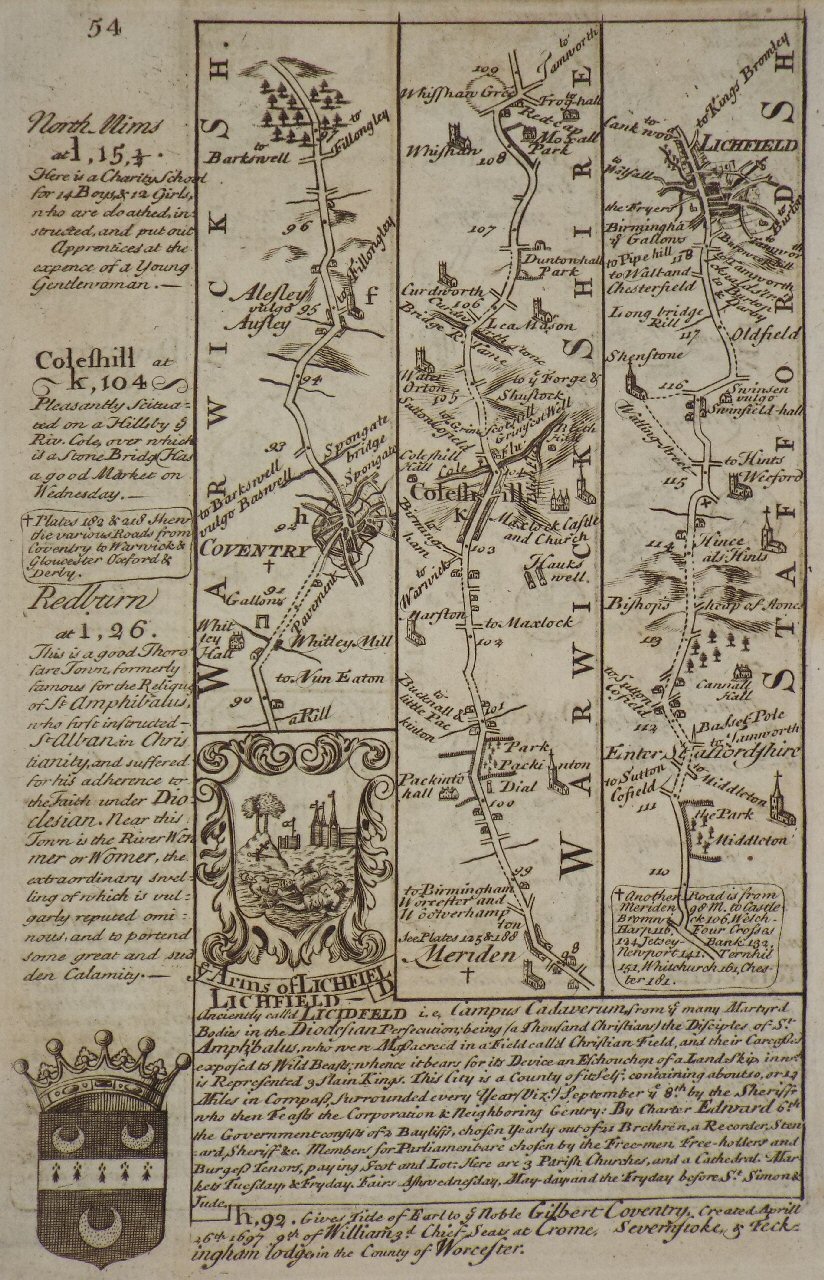 54
North Mims
at 1, 15,¼.
Here is a Charity School
for 14 Boys,& 12 Girls,
who are cloathed, in-
structed, and put out
Apprentices at the
expence of a Young
Gentlewoman. —
Coleshill at
k, 104
Pleasantly Scitua-
ted on a Hill by ye
Riv. Cole, over which
is a stone Bridg. Has
a good Market on
Wednesday. —
† Plates 182 & 218 Shew
the various Roads from
Coventry to Warwick &
Gloucester Oxford &
Derby.
Redburn
at 1, 26.
This is a good Thoro
fare Town, formerly
famous for the Reliques
of St Amphibalus,
who first instructed
St Alban in Chris
tianity, and suffered
for his adherence to
the Faith under Dio
clesian. Near this
Town is the River Wen
mer or Womer, the
extraordinary swel-
ling of which is vul-
garly reputed omi-
nous, and to portend
some great and sud
den Calamity. —
WARWICKSH.
to Fillongley
to Barkswell
96
to Fillongley
Alesley
vulgo 95
Ausley
f
94
93
Spongate
bridge
Spongate
to Barkswell
vulgo Baswell
h
92
COVENTRY
†
91
Gallows
Pavement
Whit
ley
Hall
Whitley Mill
to Nun Eaton
90
a Rill
ye Arms of LICHFIELD
WARWICKSHIRE
109
to Tamworth
Whisshaw Green
Frog hall
Moxall
Park
Whishaw
108
107
Duntonhall
Park
Curdworth
106
Curdw
Bridge
Lea Marson
Water
Orton
105
to ye Forge &
Shustock
to Sutton
Colefield
Grimscot hill
Grimscot Well
Blyth
Hall
Coleshill
Hall
Cole
flu
104
Coleshill
k
Maxlock Castle
and Church
to
Birming
ham
103
Hauks
well.
to
Warwick
Marston
to Maxlock
102
to
Bucknall &
little Pac
kinton
101
Park
Packinton
Packinto
hall
Dial
100
99
to Birmingham
Worcester and
Woolverhamp
ton
See Plates 125 & 188
Meriden
†
98
STAFFORDSH
to Kings Bromley
to
Cank wood
LICHFIELD
to
Walsall
the Fryers
to
Burton
Birmingha
ye Gallows
to Pipe hill
118
to Wall and
Chesterfield
to Tamworth
Long bridge
Rill
117
Oldfield
Shenstone
116
Swinsen
vulgo
Swinfield-hall
Watlingstreet
to Hints
115
Weeford
114
Hince
als. Hints
Bishops heap of stones
113
Cannall
Hall
to Sutton
Cofield
112
Basset Pole
to Tamworth
Enter Staffordshire
to Sutton
Cofield
to
Middleton
111
the Park
Middleton
110
† Another Road is from
Meriden 98 M. to Castle
Bromwk 106, Welch
Harp 116, Four Crosses
124, Ivetsey-Bank 132,
Newport 141, Ternhil
151, Whitchurch 161, Ches-
ter 181.
LICHFIELD —
Anciently call'd LICIDFELD i.e. Campus Cadaverum, from ye many Martyrd
Bodies in the Dioclesian Persecution; being (a Thousand Christians) the Disciples of St
Amphibalus, who were Massacreed in a Field call'd Christian Field, and their Carcasses
exposed to Wild Beasts; whence it bears for its Device an Eschoucheon of a Landskip in wch
is Represented 3 Slain Kings. This City is a County of itself, containing about 10, or 12
Miles in Compass, Surrounded every Year (Viz.) September ye 8th by the Sheriff,
who then Feasts the Corporation & Neighboring Gentry: By Charter Edward 6th
the Government consists of 2 Bayliffs, chosen Yearly out of 21 Brethren, a Recorder, Stew
ard, Sheriff &c. Members for Parliament are chosen by the Free-men, Free-holders and
Burgess Tenors, paying Scot and Lot: Here are 3 Parish Churches, and a Cathedral. Mar-
kets Tuesday & Fryday. Fairs Ashwednesday, May-day and the Fryday before St. Simon &
Jude.
h, 92. Gives Title of Earl to ye Noble Gilbert Coventry, Created Aprill
26th 1697 9th of William 3d Chief Seats at Crome, Severnstoke, & Feck-
ingham lodge in the County of Worcester.